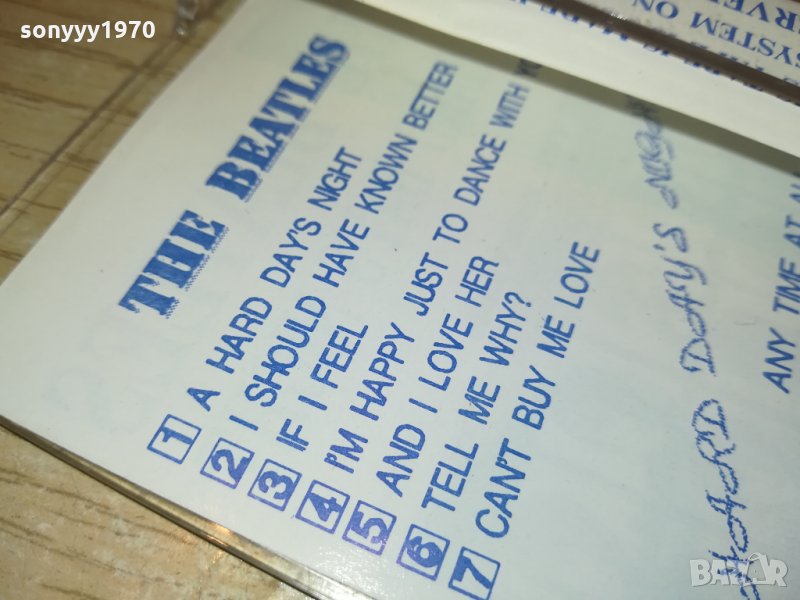 sonyyy1970
THE BEATLES
1 A HARD DAY'S NIGHT
2 I SHOULD HAVE KNOWN BETTER
3 IF I FEEL
4 I'M HAPPY JUST TO DANCE WITH
5 AND I LOVE HER
6 TELL ME WHY?
7 CAN'T BUY ME LOVE
HARD DAY'S
ANY TIME AT
SYSTEM ON
BAZAR